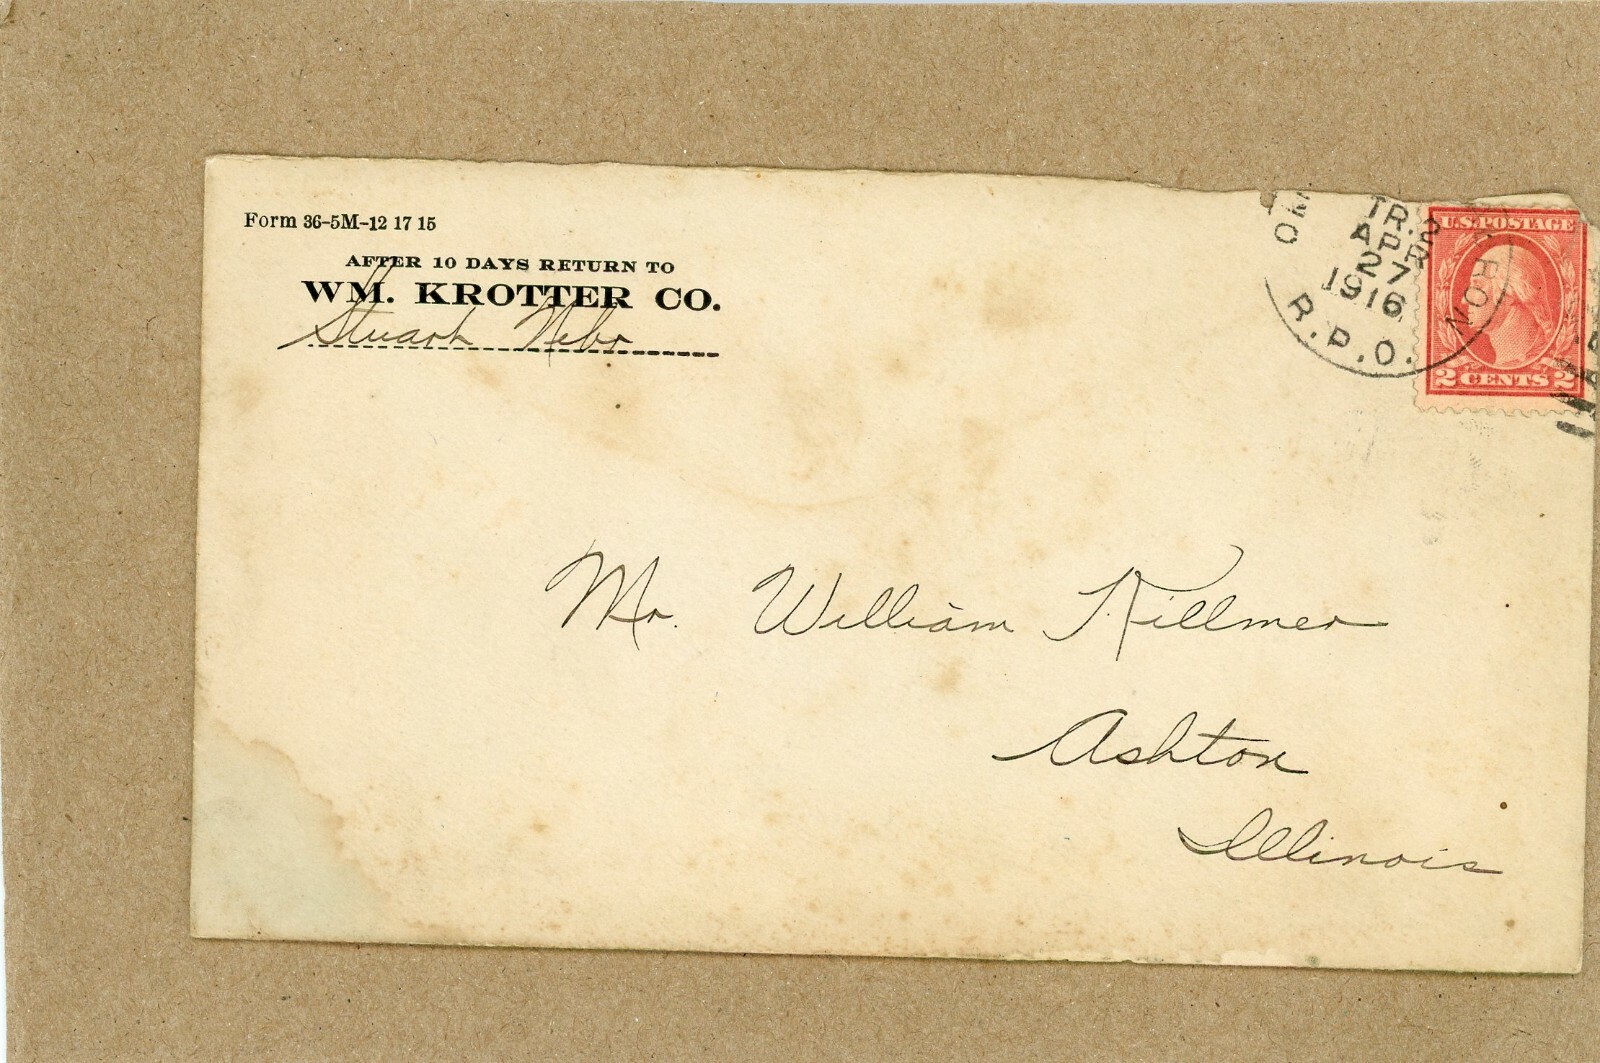 Form 36-5M-12 17 15
AFTER 10 DAYS RETURN TO
WM. KROTTER CO.
Stuart Nebr
TR. 2
APR
27
1916
R.P.O.
U.S. POSTAGE
2 CENTS 2
Mr. William Killmer
Ashton
Illinois